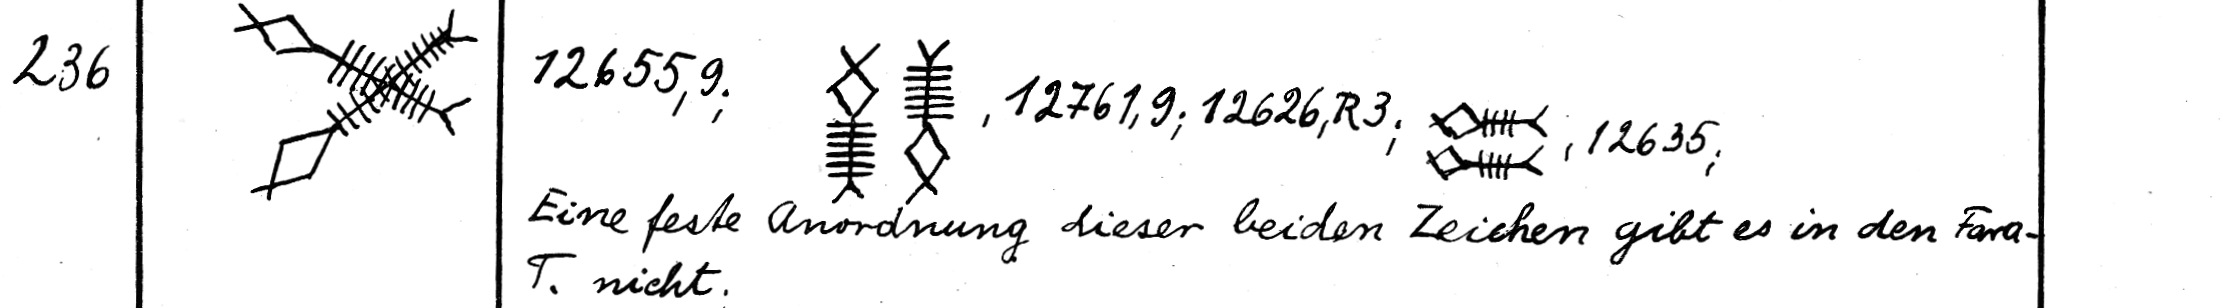 236 12655,9; , 12761,9; 12626,R3; , 12635;
Eine feste Anordnung dieser beiden Zeichen gibt es in den Fara-
T. nicht.